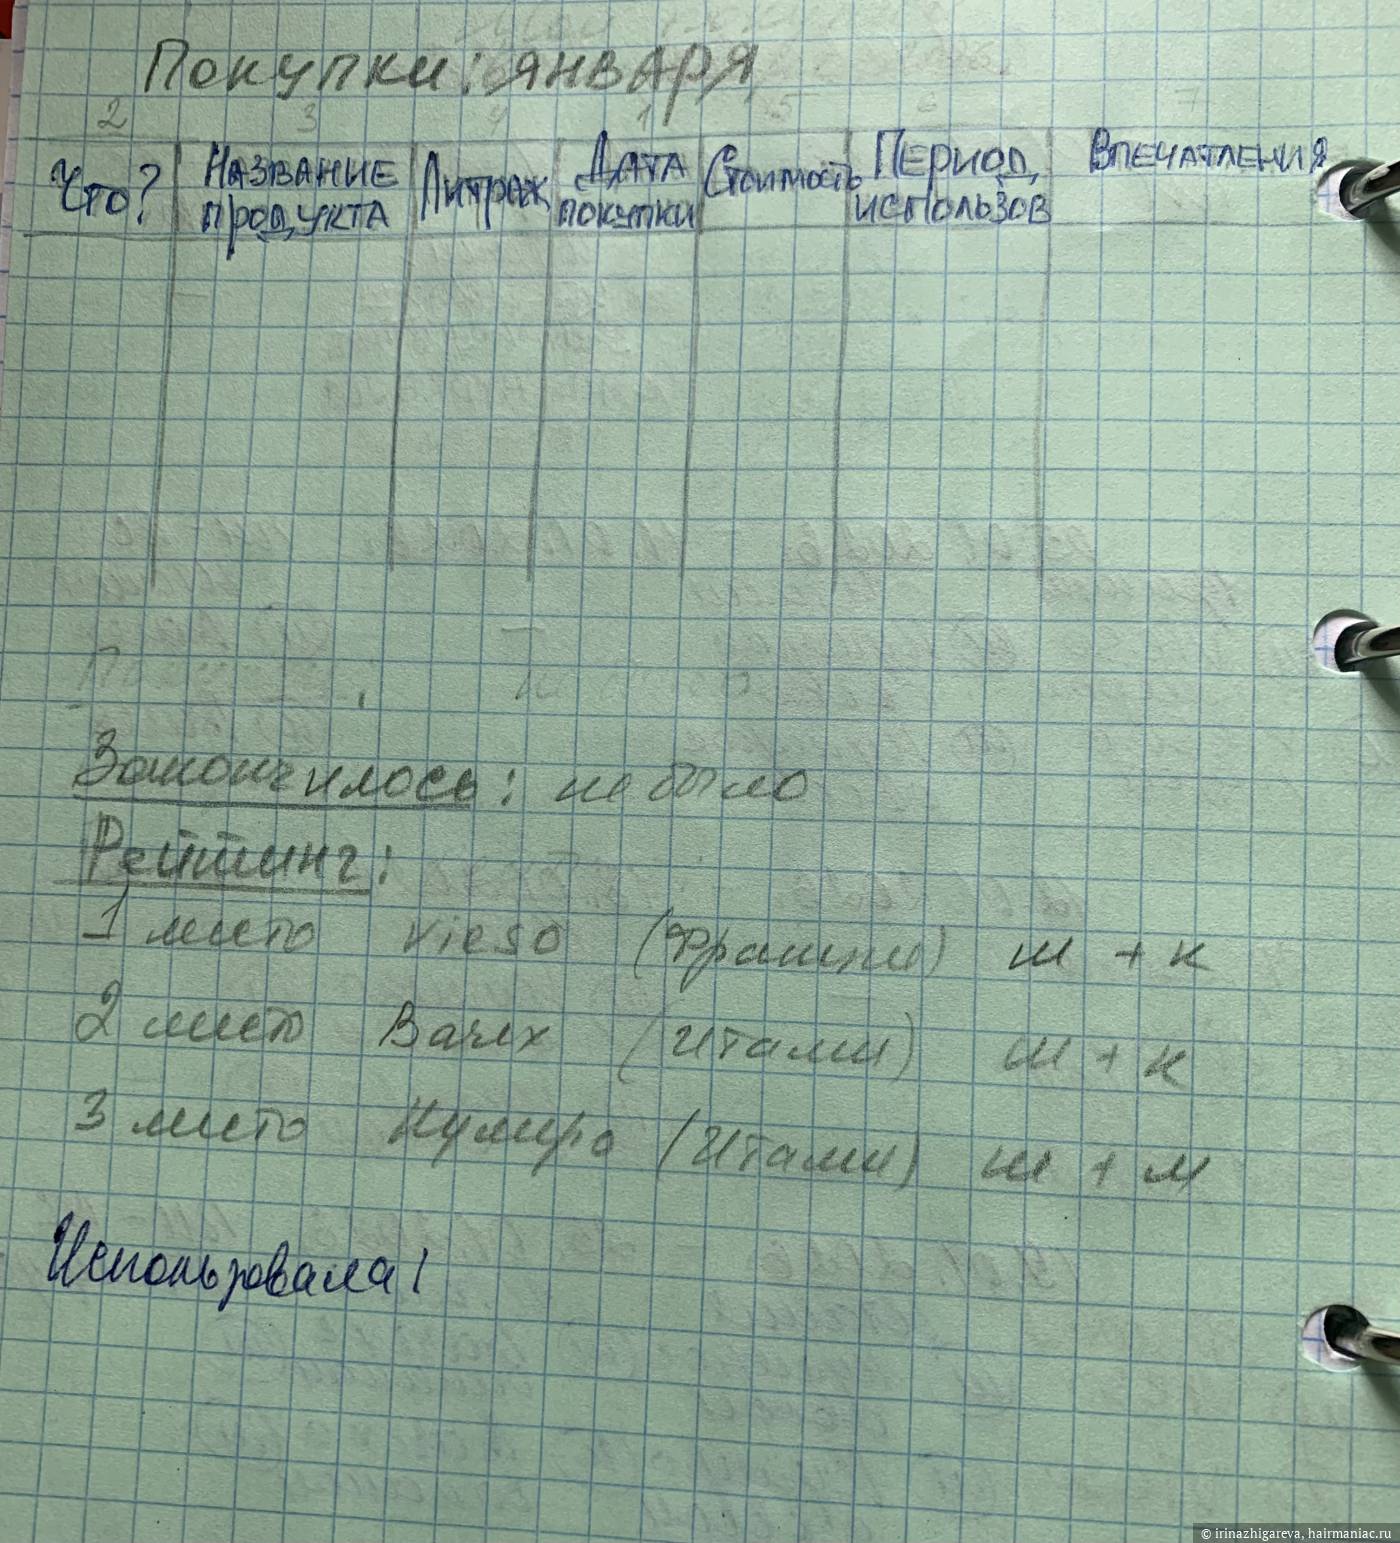 Покупки: января
2 3 4 1 5 6 7
Что? Название продукта Литраж Дата покупки Стоимость Период использов Впечатления
Закончилось: не было
Рейтинг:
1 место Vieso (Франция) ш + к
2 место Barex (Италия) ш + к
3 место Нумеро (Италия) ш + м
Использовала:
© irinazhigareva, hairmaniac.ru